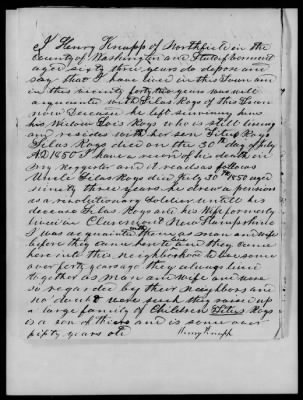 I Henry Knapp of Northfield in the
County of Washington and State of Vermont
aged sixty three years do depose and
say that I have lived in this Town and
in this vicinity forty two years was well
acquainted with Silas Keys of this Town
now Deceased he left surviving him
his Widow Lois Keys who is still living
and resides with her son Titus Keys
Silas Keys died on the 30th day of July
AD 1850 I have a record of his death in
my Register and it reads as follows
Uncle Silas Keys died July 30th 1850 aged
ninety three years he drew a pension
as a revolutionary Soldier until his
decease Silas Keys and his Wife formerly
lived in Claremont New Hampshire
I was acquainted with them as man and wife
before they came here to live and they came
here into this neighborhood to live some
over forty years ago they always lived
together as man and wife and were
so regarded by their neighbors and
no doubt were such they raised up
a large family of Children Titus Keys
is a son of theirs and is some over
fifty years old
Henry Knapp